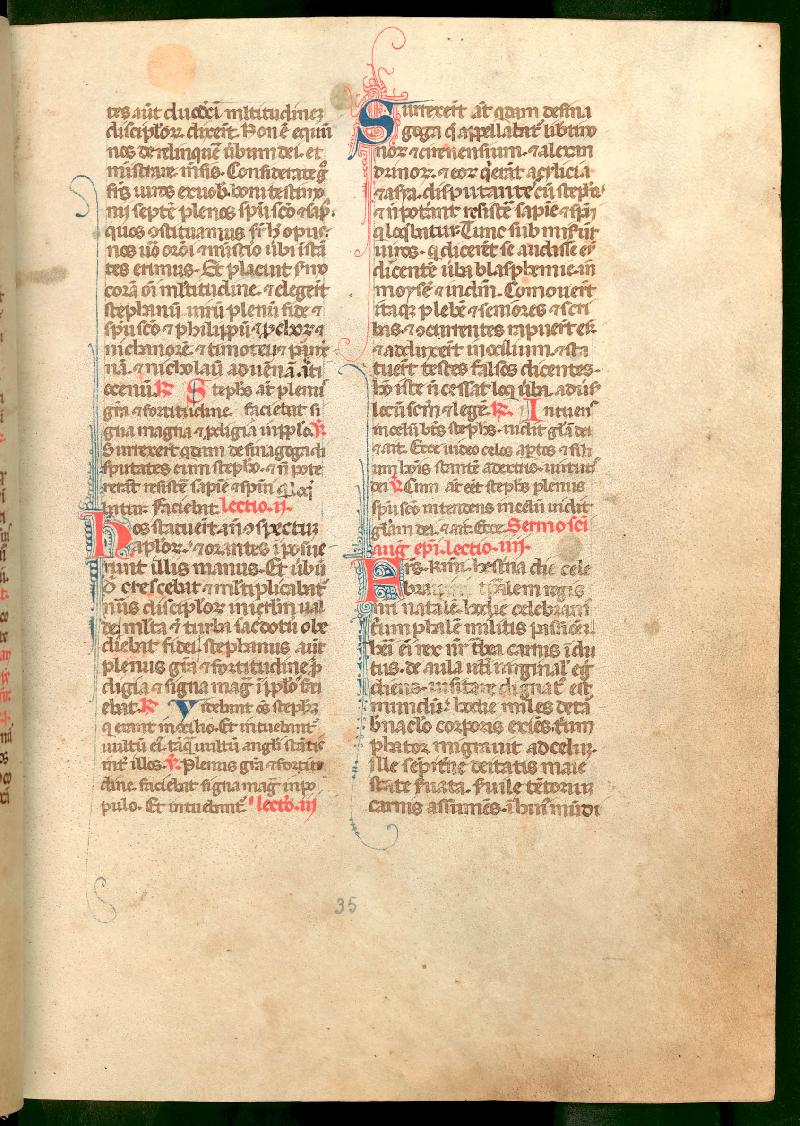 tes aūt duodeci mltitudinez
disciploꝝ dixerūt. Non ē equū
nos derelinquē ūbum dei. et
mistrare mēsis. Considerate gͦ
frīs uiros ex uob. boni testimo
nij septē plenos spū scō ⁊ sap̄.
quos ↄstituamus sr̄ h̄ opus.
nos uō oroni ⁊ mīstio ūbi īstā
tes erimus. Et placuit smo
corā oī mltitudine. ⁊ elegerūt
stephanū uirū plenū fide ⁊
spū scō ⁊ philippū ⁊ pchorū ⁊
nichanorē. ⁊ timoteū ⁊ pmē
nā. ⁊ nicholaū aduenā āti
ocenū. R̄ Stephs at̄ plenus
grā ⁊ fortitudine. faciebat si
gna magna ⁊ pdigia in pplo. V̄
Surrexerūt qdam de sinagoga di
sputātes cum stepho. ⁊ ñ pote
rant resistē sapiē ⁊ spūi q loq̄
batur. Faciebat. lectio .ij.
Hos statuerūt añ ↄspectuꝫ
aploꝝ. ⁊ orantes īposue
runt illis manus. Et ūbū
dñi crescebat ⁊ mltiplicabat᷑
nūs disciploꝝ in ierl̄m ual
de. mlta ⁊ turba sacdotū obe
diebat fidei. stephanus aūt
plenus grā ⁊ fortitudine
pdigia ⁊ signa maḡ ī pplo faci
ebat. R̄ Videbant oēs stephū
q erant in ↄcilio. Et intuebant᷑
uultū ei. tāq̄ uultū angli stātis
int̄ illos. V̄ Plenus grā ⁊ fortitu
dine. faciebat signa maḡ in po
pulo. Et intuebant᷑ lectō .iij
Surrexerūt at̄ qdam de sina
goga q̄ appellabat᷑ libtino
noꝝ ⁊ cirenensium. ⁊ alexan
drinoꝝ. ⁊ eoꝝ q̄ erāt a cylicia
⁊ asya. disputante cū stepho
⁊ ñ potant resistē sapiē ⁊ spūi
q loq̄batur. Tunc sub misērūt
uiros. q dicerēt se audisse eū
dicentē ūba blasphemie. in
moysē ⁊ in dm̄. Comouerūt
itaq̄ plebē ⁊ seniores ⁊ scri
bas. ⁊ ↄcurrentes rapuerūt eū
⁊ adduxerūt in ↄcilium. ⁊ sta
tuerūt testes falsos dicentes.
hō iste ñ cessat loq ūba. adūs
locū scm̄ ⁊ legē. R̄ Intuens
in celū bt̄s stephs. uidit glām dei
⁊ ait. Ecce uideo celos aptos ⁊ filiū
um hoīs stantē a dextris. uirtutis
dei. V̄ Cum at̄ eēt stephs plenus
spū scō intendens in celū uidit
glām dei. ⁊ ait. Ecce. Sermo sci
auḡ epi. lectio .iiij.
Frs kmi. hesterna die cele
brauim᷑ tpalem regis
nri natalē. hodie celebram᷑
triumphalē militis passiōeꝫ.
heri eī rex nr̄ trabea carnis īdu
tus. de aula ut̄i uirginal᷑ eḡ
diens. uisitare dignat᷑ est
mundū. hodie miles de ta
bnaclo corporis exiēs. trium
phator migrauit ad celuꝫ.
ille sepitne deitatis maie
state suata. suile tētorium
carnis assumēs. ī huī mūdi
35